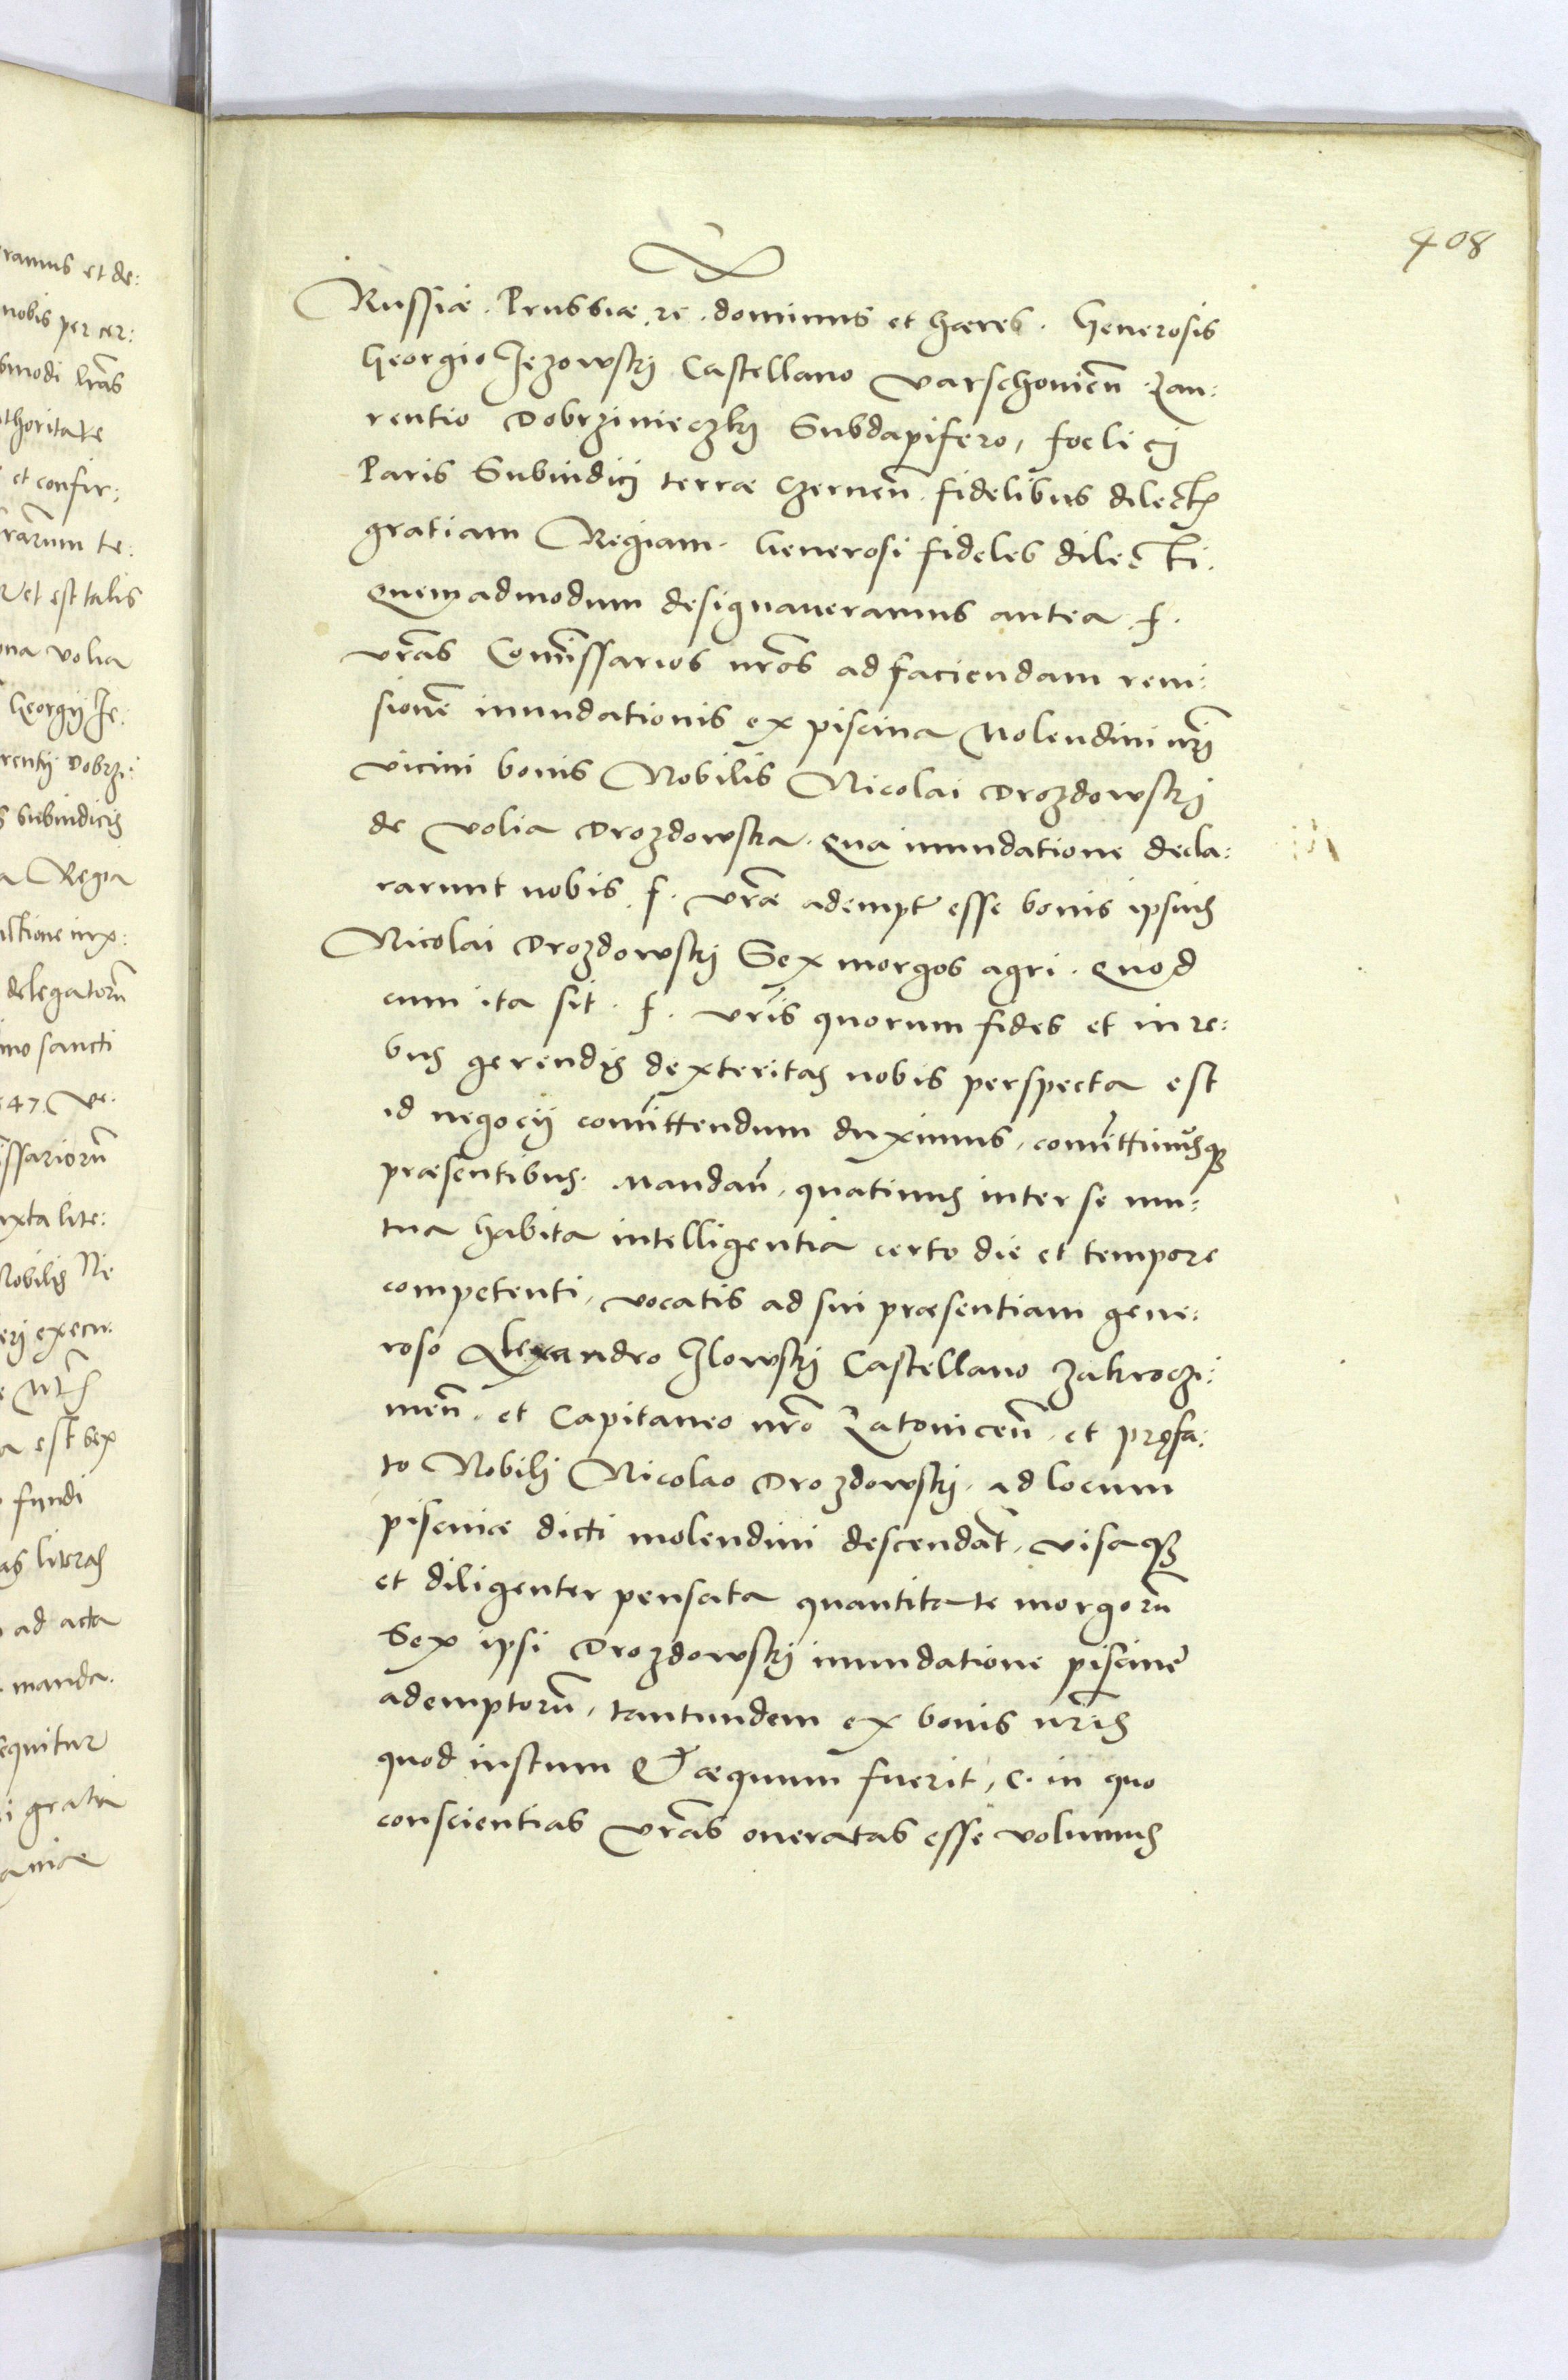 408
ramus et de:
nobis per cer:
smodi lras
thoritate
et confir:
rarum te:
Vet est talis
na volia
Georgij Je:
rentij Dobrzi:
s Subiudicis
a Regia
ultione iux:
delegatorũ
imo sancti
547. Ve:
issariorũ
uxta lite:
Nobilis Ni
erj execu:
a est sex
fundi
as literas
ad acta
manda.
equitur
i gratia
aniæ
Russiæ. Prussiæ. zc. dominus et hæres. Generosis
Georgio Jezowskj Castellano Varschovieñ. Lau:
rentio Dobrzinieczkj Subdapifero, foelicj
Paris Subiudicj terræ Czerneñ. fidelibus dilectis
gratiam Regiam. Generosi fideles dilecti.
Quemadmodum designaueramus antea. f.
vras Comissarios nros ad faciendam reui:
sionẽ inundationis ex piscina Molendini nri
vicini bonis Nobilis Nicolai Drozdowskj
de Volia Drozdowska. Qua inundatione decla:
rarunt nobis. f. vræ adempt esse bonis ipsius
Nicolai Drozdowskj Sex morgos agri. Quod
cum ita sit. f. vris quorum fides et in re:
bus gerendis dexteritas nobis perspecta est
id negocij comittendum duximus, comittimusq3
præsentibus. Mandañ. quatinus inter se mu:
tua habita intelligentia certo die et tempore
competenti, vocatis ad sui præsentiam gene:
roso Alexandro Jlowskj Castellano Zakroczi:
meñ. et Capitaneo nro Latoviceñ. et pręfa:
to Nobilj Nicolao Drozdowskj. ad locum
piscinæ dicti molendini descendãt, visaq3
et diligenter pensata quantitate morgorũ
Sex ipsi Drozdowskj inundatione piscinę
ademptorũ, tantundem ex bonis nris
quod iustum & æquum fuerit, c. in quo
conscientias vras oneratas esse volumus